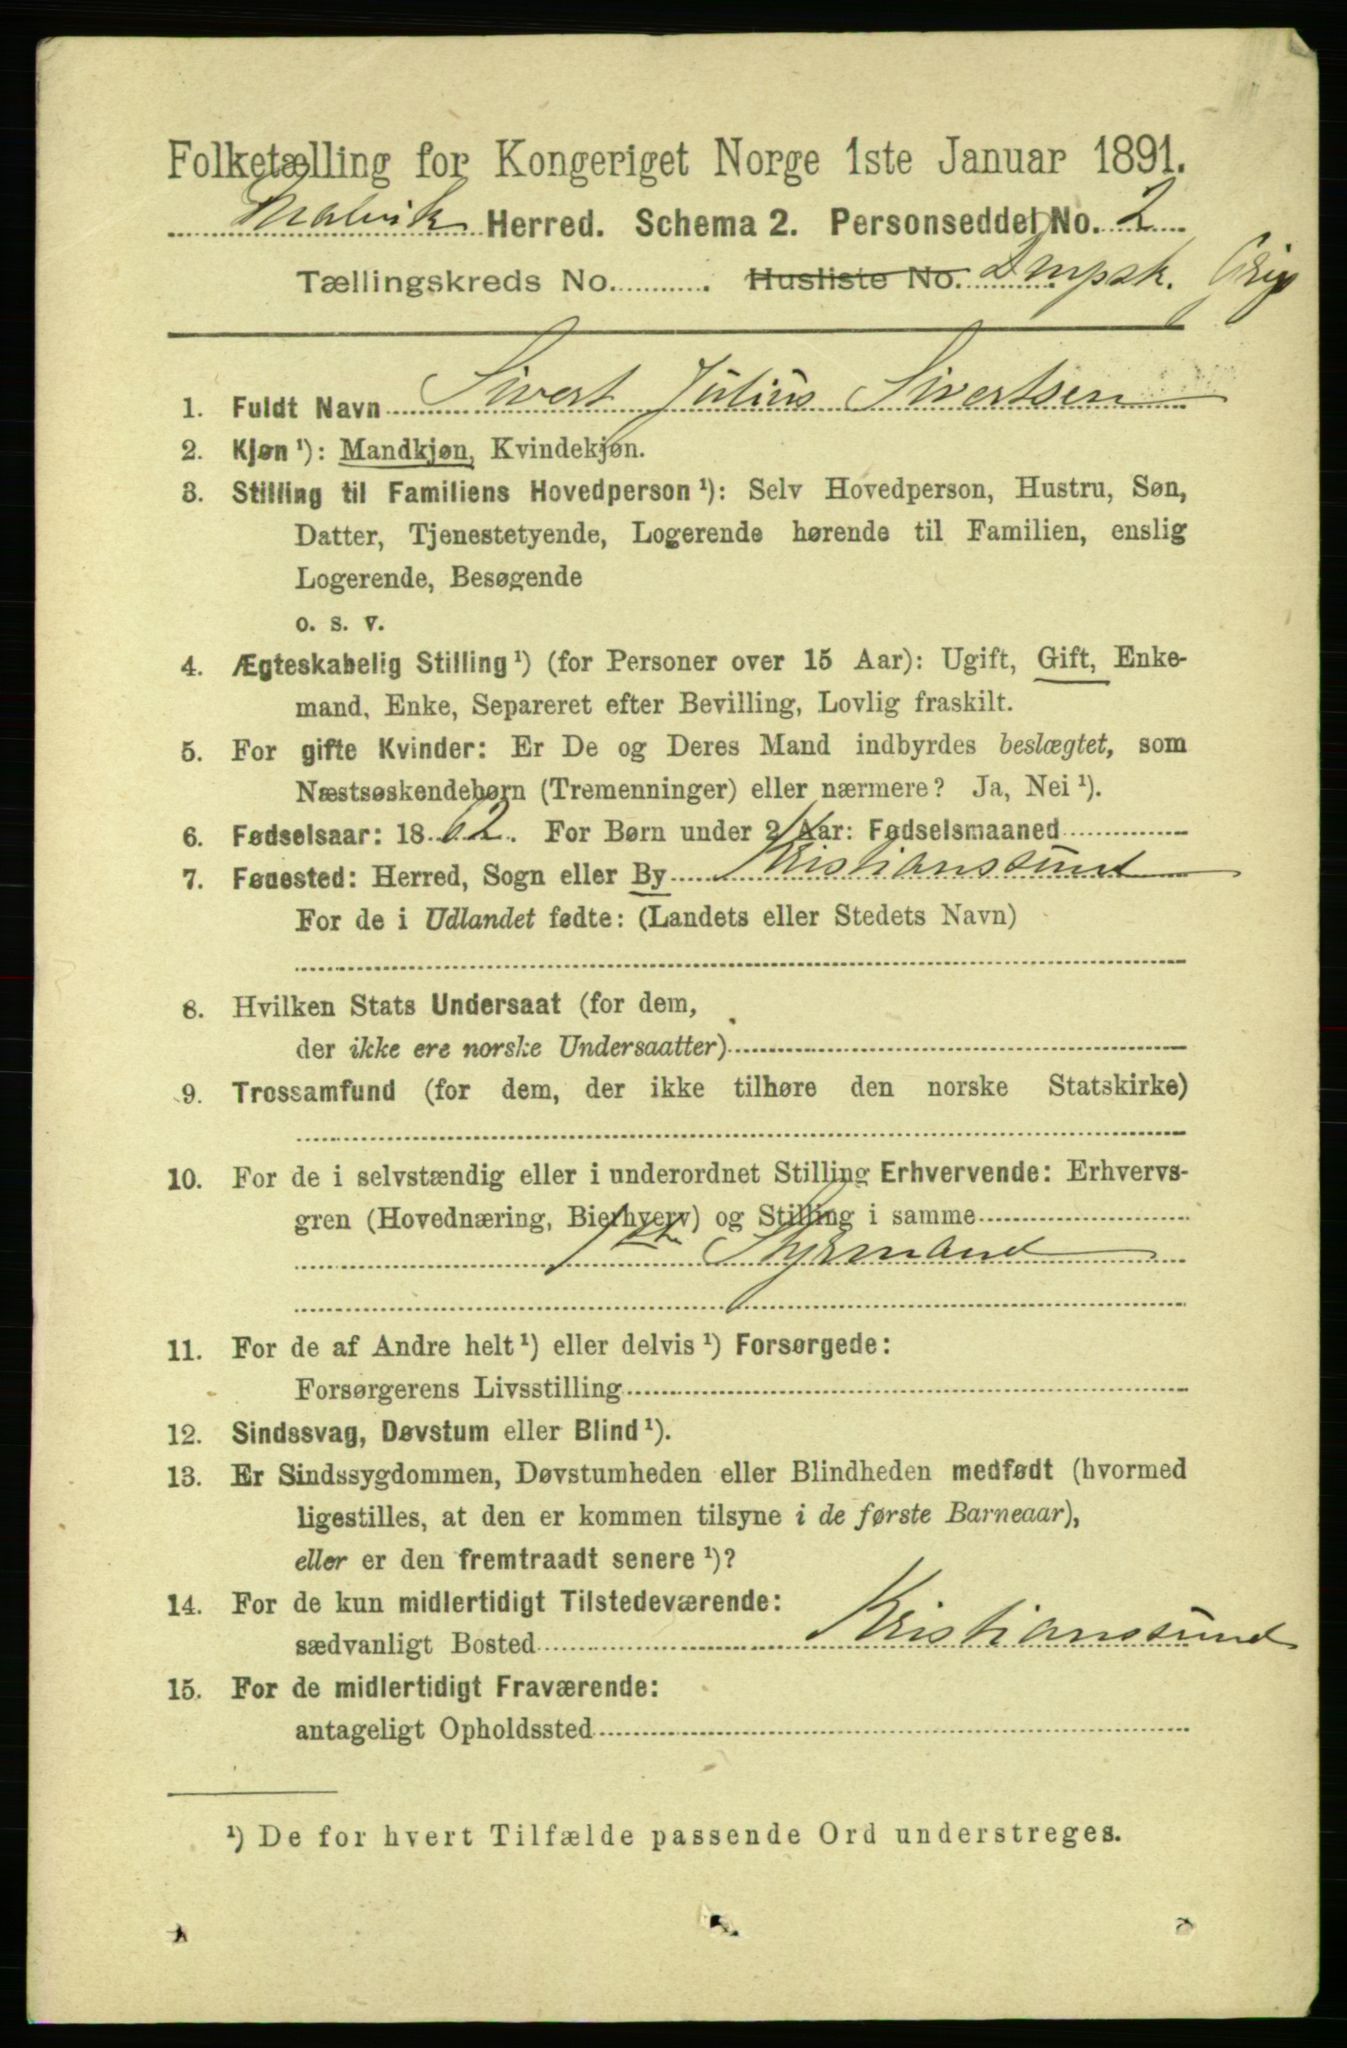 Folketælling for Kongeriget Norge 1ste Januar 1891.
Malvik Herred. Schema 2. Personseddel No. 2
Tællingskreds No. ............ Husliste No. Dmpsk. Grip
1. Fuldt Navn Sivert Julius Sivertsen
2. Kjøn ¹): Mandkjøn, Kvindekjøn.
3. Stilling til Familiens Hovedperson ¹): Selv Hovedperson, Hustru, Søn,
Datter, Tjenestetyende, Logerende hørende til Familien, enslig
Logerende, Besøgende
o. s. v.
4. Ægteskabelig Stilling ¹) (for Personer over 15 Aar): Ugift, Gift, Enke-
mand, Enke, Separeret efter Bevilling, Lovlig fraskilt.
5. For gifte Kvinder: Er De og Deres Mand indbyrdes beslægtet, som
Næstsøskendebørn (Tremenninger) eller nærmere? Ja, Nei ¹).
6. Fødselsaar: 1862. For Børn under 2 Aar: Fødselsmaaned
7. Fødested: Herred, Sogn eller By Kristianssund
For de i Udlandet fødte: (Landets eller Stedets Navn)
8. Hvilken Stats Undersaat (for dem,
der ikke ere norske Undersaatter)
9. Trossamfund (for dem, der ikke tilhøre den norske Statskirke)
10. For de i selvstændig eller i underordnet Stilling Erhvervende: Erhvervs-
gren (Hovednæring, Bierhverv) og Stilling i samme
1ste Styrmand
11. For de af Andre helt ¹) eller delvis ¹) Forsørgede:
Forsørgerens Livsstilling
12. Sindssvag, Døvstum eller Blind ¹).
13. Er Sindssygdommen, Døvstumheden eller Blindheden medfødt (hvormed
ligestilles, at den er kommen tilsyne i de første Barneaar),
eller er den fremtraadt senere ¹)?
14. For de kun midlertidigt Tilstedeværende:
sædvanligt Bosted Kristianssund
15. For de midlertidigt Fraværende:
antageligt Opholdssted
¹) De for hvert Tilfælde passende Ord understreges.